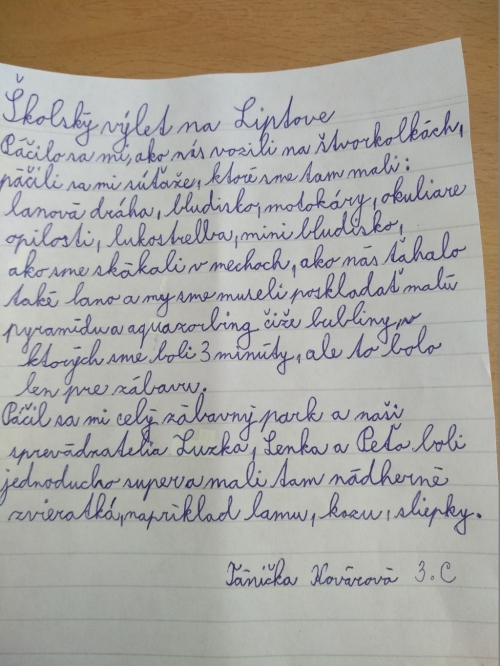 Školský výlet na Liptove
Páčilo sa mi, ako nás vozili na štvorkolkách,
páčili sa mi súťaže, ktoré sme tam mali:
lanová dráha, bludisko, motokáry, okuliare
opilosti, lukostreľba, mini bludisko,
ako sme skákali v mechoch, ako nás ťahalo
také lano a my sme museli poskladať malú
pyramídu a aquazorbing čiže bubliny, v
ktorých sme boli 3 minúty, ale to bolo
len pre zábavu.
Páčil sa mi celý zábavný park a naši
sprevádzatelia Luzka, Lenka a Peťo boli
jednoducho super a mali tam nádherné
zvieratká, napríklad lamu, kozu, sliepky.
Tánička Kovárová 3. C